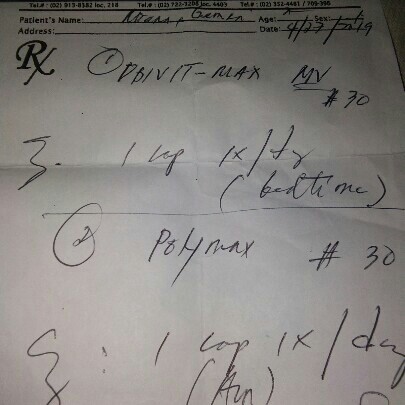 Tel.# : (02) 913-8382 loc. 216 Tel.# : (02) 722-3208 loc. 4403 Tel.# : (02) 352-4481 / 709-396
Patient's Name: Age: Sex:
Address: Date: 4/27/2019
Rx
1 OBIVIT-MAX MV
# 30
1 cap 1x/dy
(bedtime)
2 Polymax # 30
: 1 cap 1x/day
(Am)